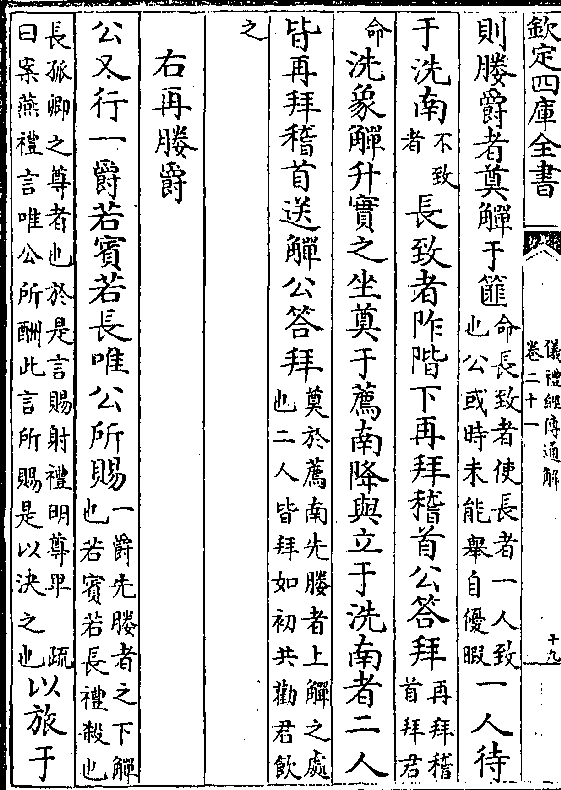 欽定四庫全書
儀禮經傳通解
卷二十一
十九
則媵爵者奠觶于篚命長致者使長者一人致也公或時未能舉自優暇一人待
于洗南不致者長致者阼階下再拜稽首公答拜再拜稽首拜君
命洗象觶升實之坐奠于薦南降與立于洗南者二人
皆再拜稽首送觶公答拜奠於薦南先媵者上觶之處也二人皆拜如初共勸君飲
之
右再媵爵
公又行一爵若賓若長唯公所賜一爵先媵者之下觶也若賓若長禮殺也
長孤卿之尊者也於是言賜射禮明尊卑 疏曰案燕禮言唯公所酬此言所賜是以決之也以旅于